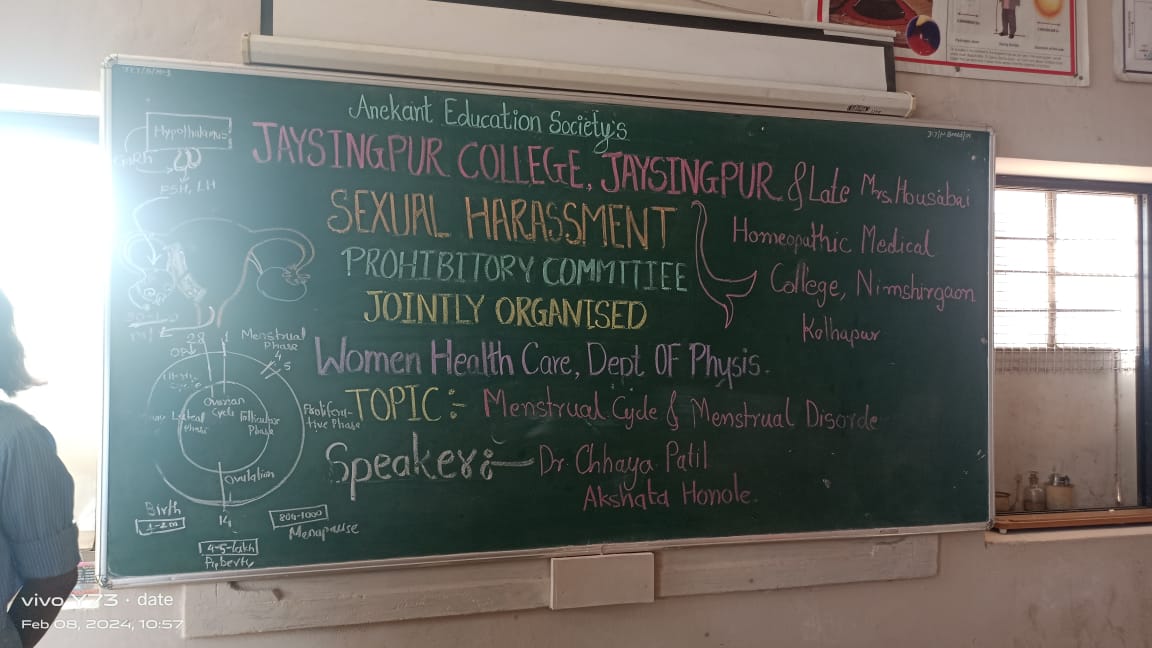 Anekant Education Society's
JAYSINGPUR COLLEGE, JAYSINGPUR & Late Mrs. Housabai
SEXUAL HARASSMENT
Homeopathic Medical
PROHIBITORY COMMITIEE
College, Nimshirgaon
JOINTLY ORGANISED
Kolhapur
Women Health Care, Dept OF Physis.
TOPIC:- Menstrual Cycle & Menstrual Disorde
Speaker:- Dr. Chhaya Patil
Akshata Honole.
Hypothalamus
GnRh
FSH, LH
28 1
Menstrual
Phase
4
5
Ovarian
Cycle
Luteal
Phase
Follicular
Phase
Prolifera-
tive Phase
Ovulation
14
Birth
1-2m
4-5-lakh
Puberty
Menapause
vivo Y73 · date
Feb 08, 2024, 10:57